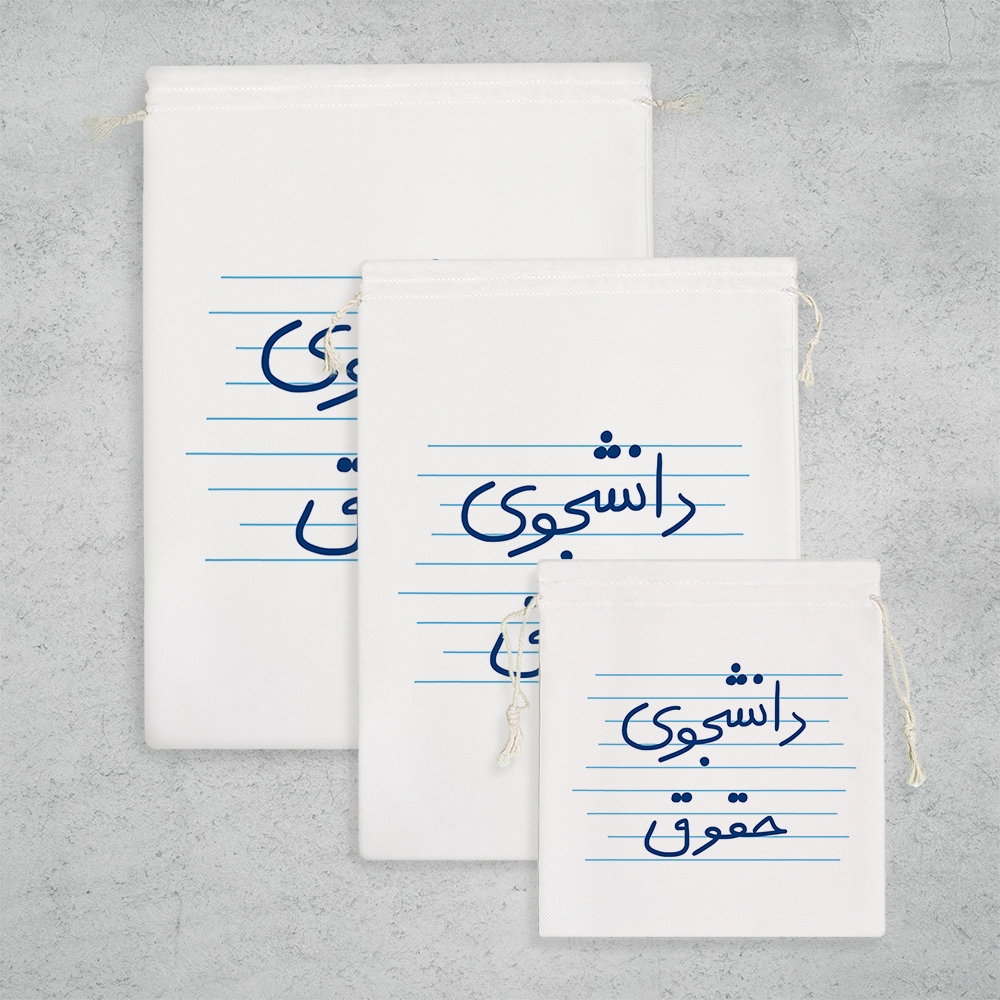 دانشجوی
دانشجوی
حقوق